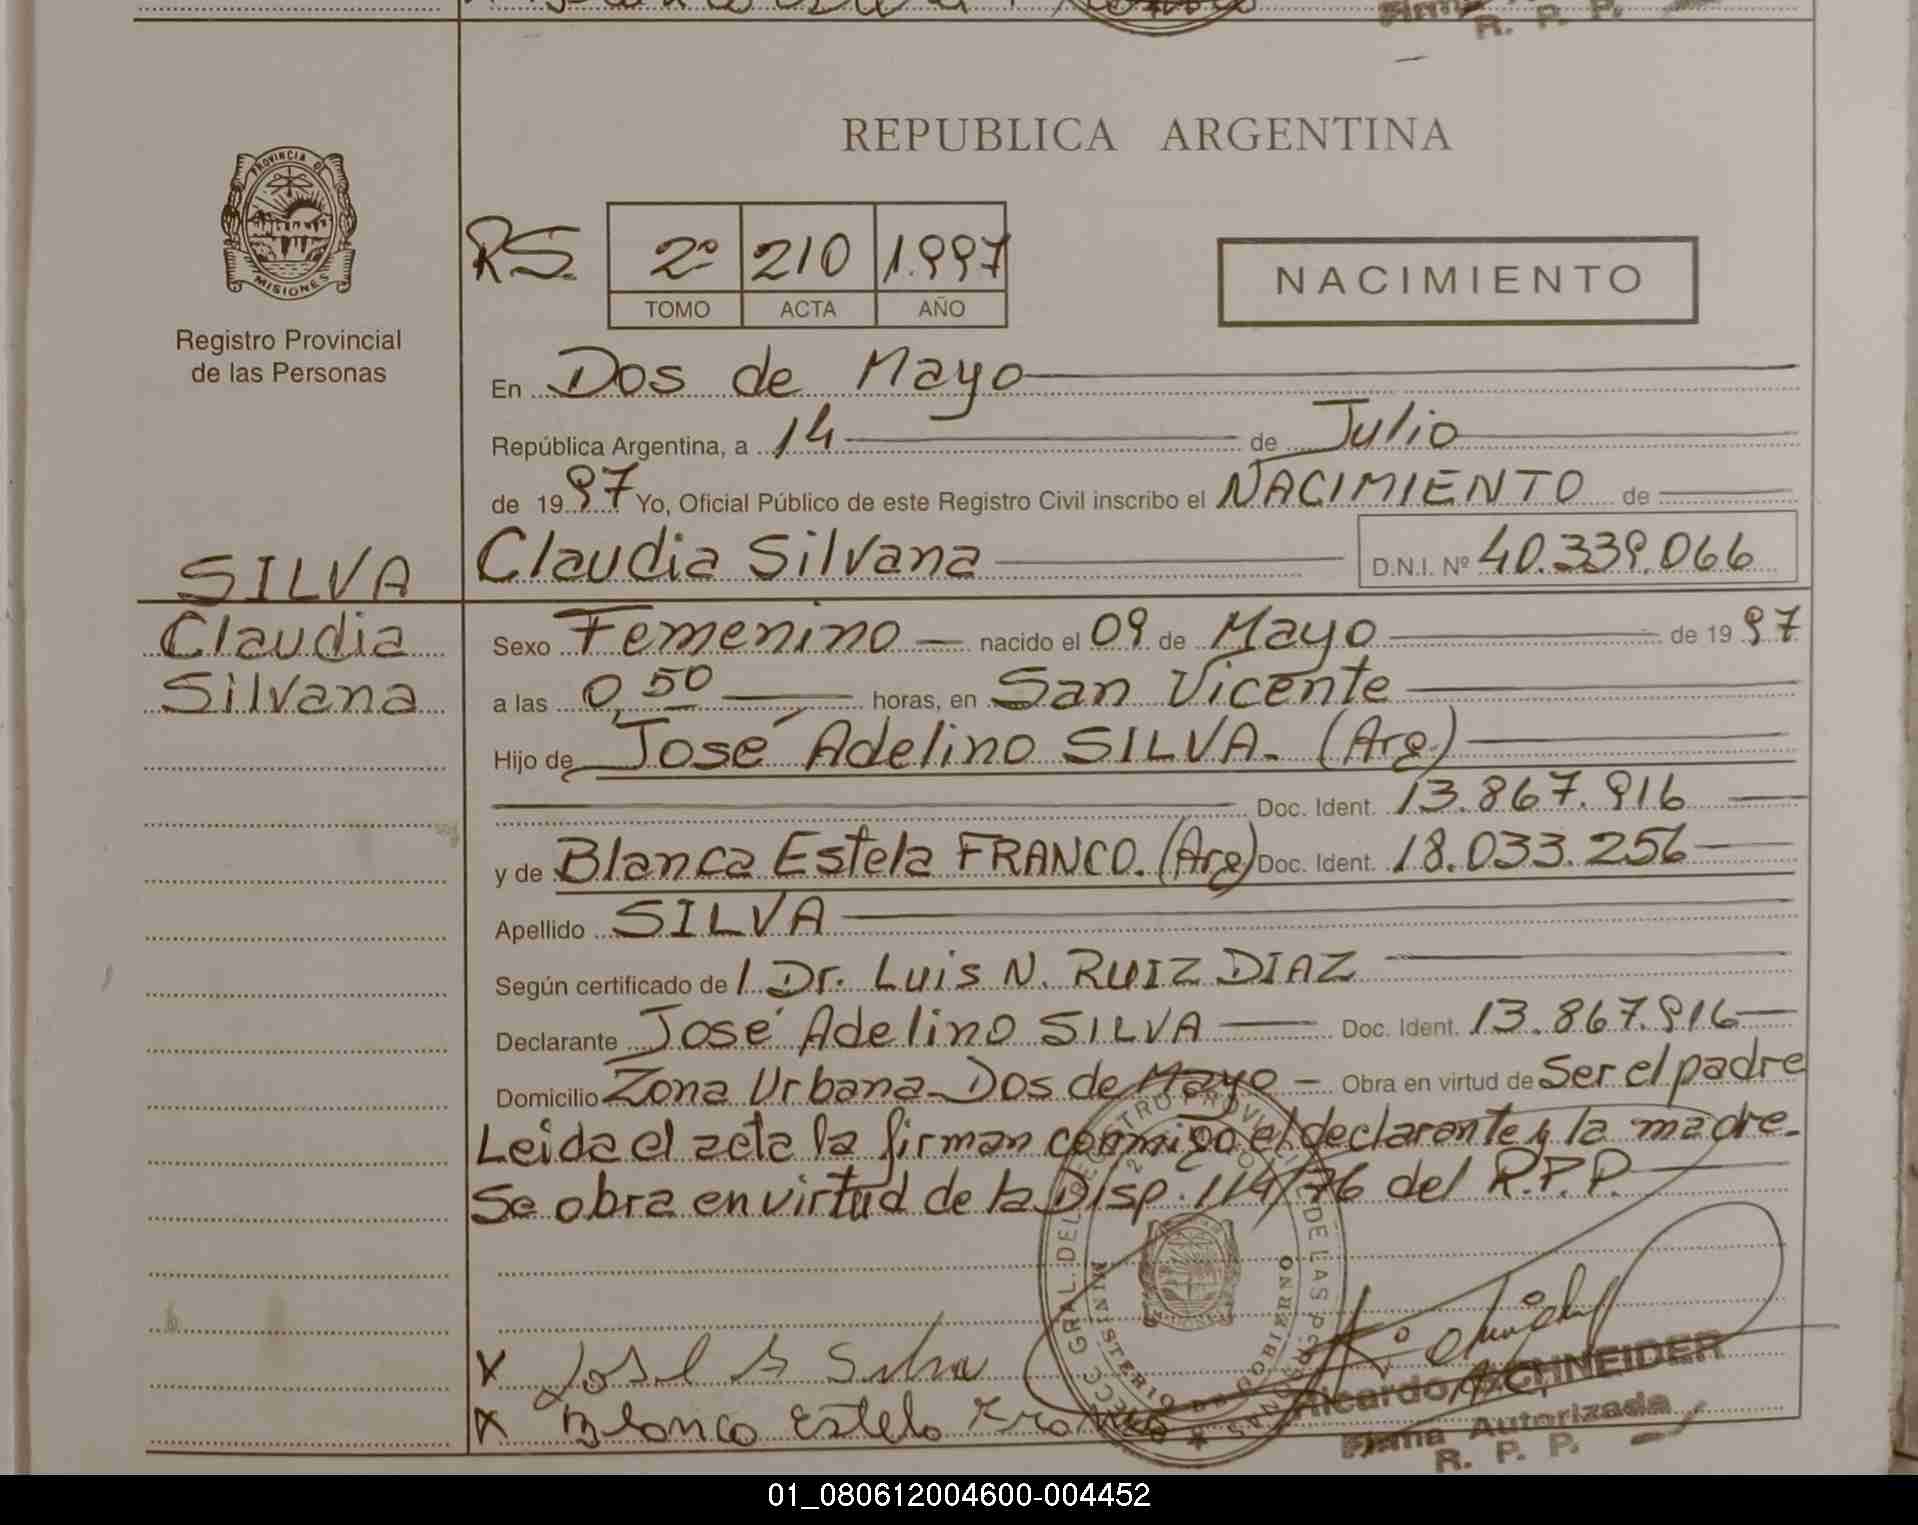 REPUBLICA ARGENTINA
PROVINCIA DE
MISIONES
Registro Provincial
de las Personas
RS 2º 210 1.997
TOMO ACTA AÑO
NACIMIENTO
En Dos de Mayo
República Argentina, a 14 de Julio
de 1997 Yo, Oficial Público de este Registro Civil inscribo el NACIMIENTO de
Claudia Silvana D.N.I. Nº 40.339.066
SILVA
Claudia
Silvana
Sexo Femenino nacido el 09 de Mayo de 1997
a las 0,50 horas, en San Vicente
Hijo de José Adelino SILVA. (Arg.)
Doc. Ident. 13.867.916
y de Blanca Estela FRANCO. (Arg) Doc. Ident. 18.033.256
Apellido SILVA
Según certificado de / Dr. Luis N. RUIZ DIAZ
Declarante José Adelino SILVA Doc. Ident. 13.867.916
Domicilio Zona Urbana - Dos de Mayo - Obra en virtud de Ser el padre
Leida el acta la firman conmigo el declarante y la madre.
Se obra en virtud de la Disp. 114/76 del R.P.P.
X José A Silva
X Blanca Estela Franco
Ricardo SCHNEIDER
Firma Autorizada
R. P. P.
01_080612004600-004452